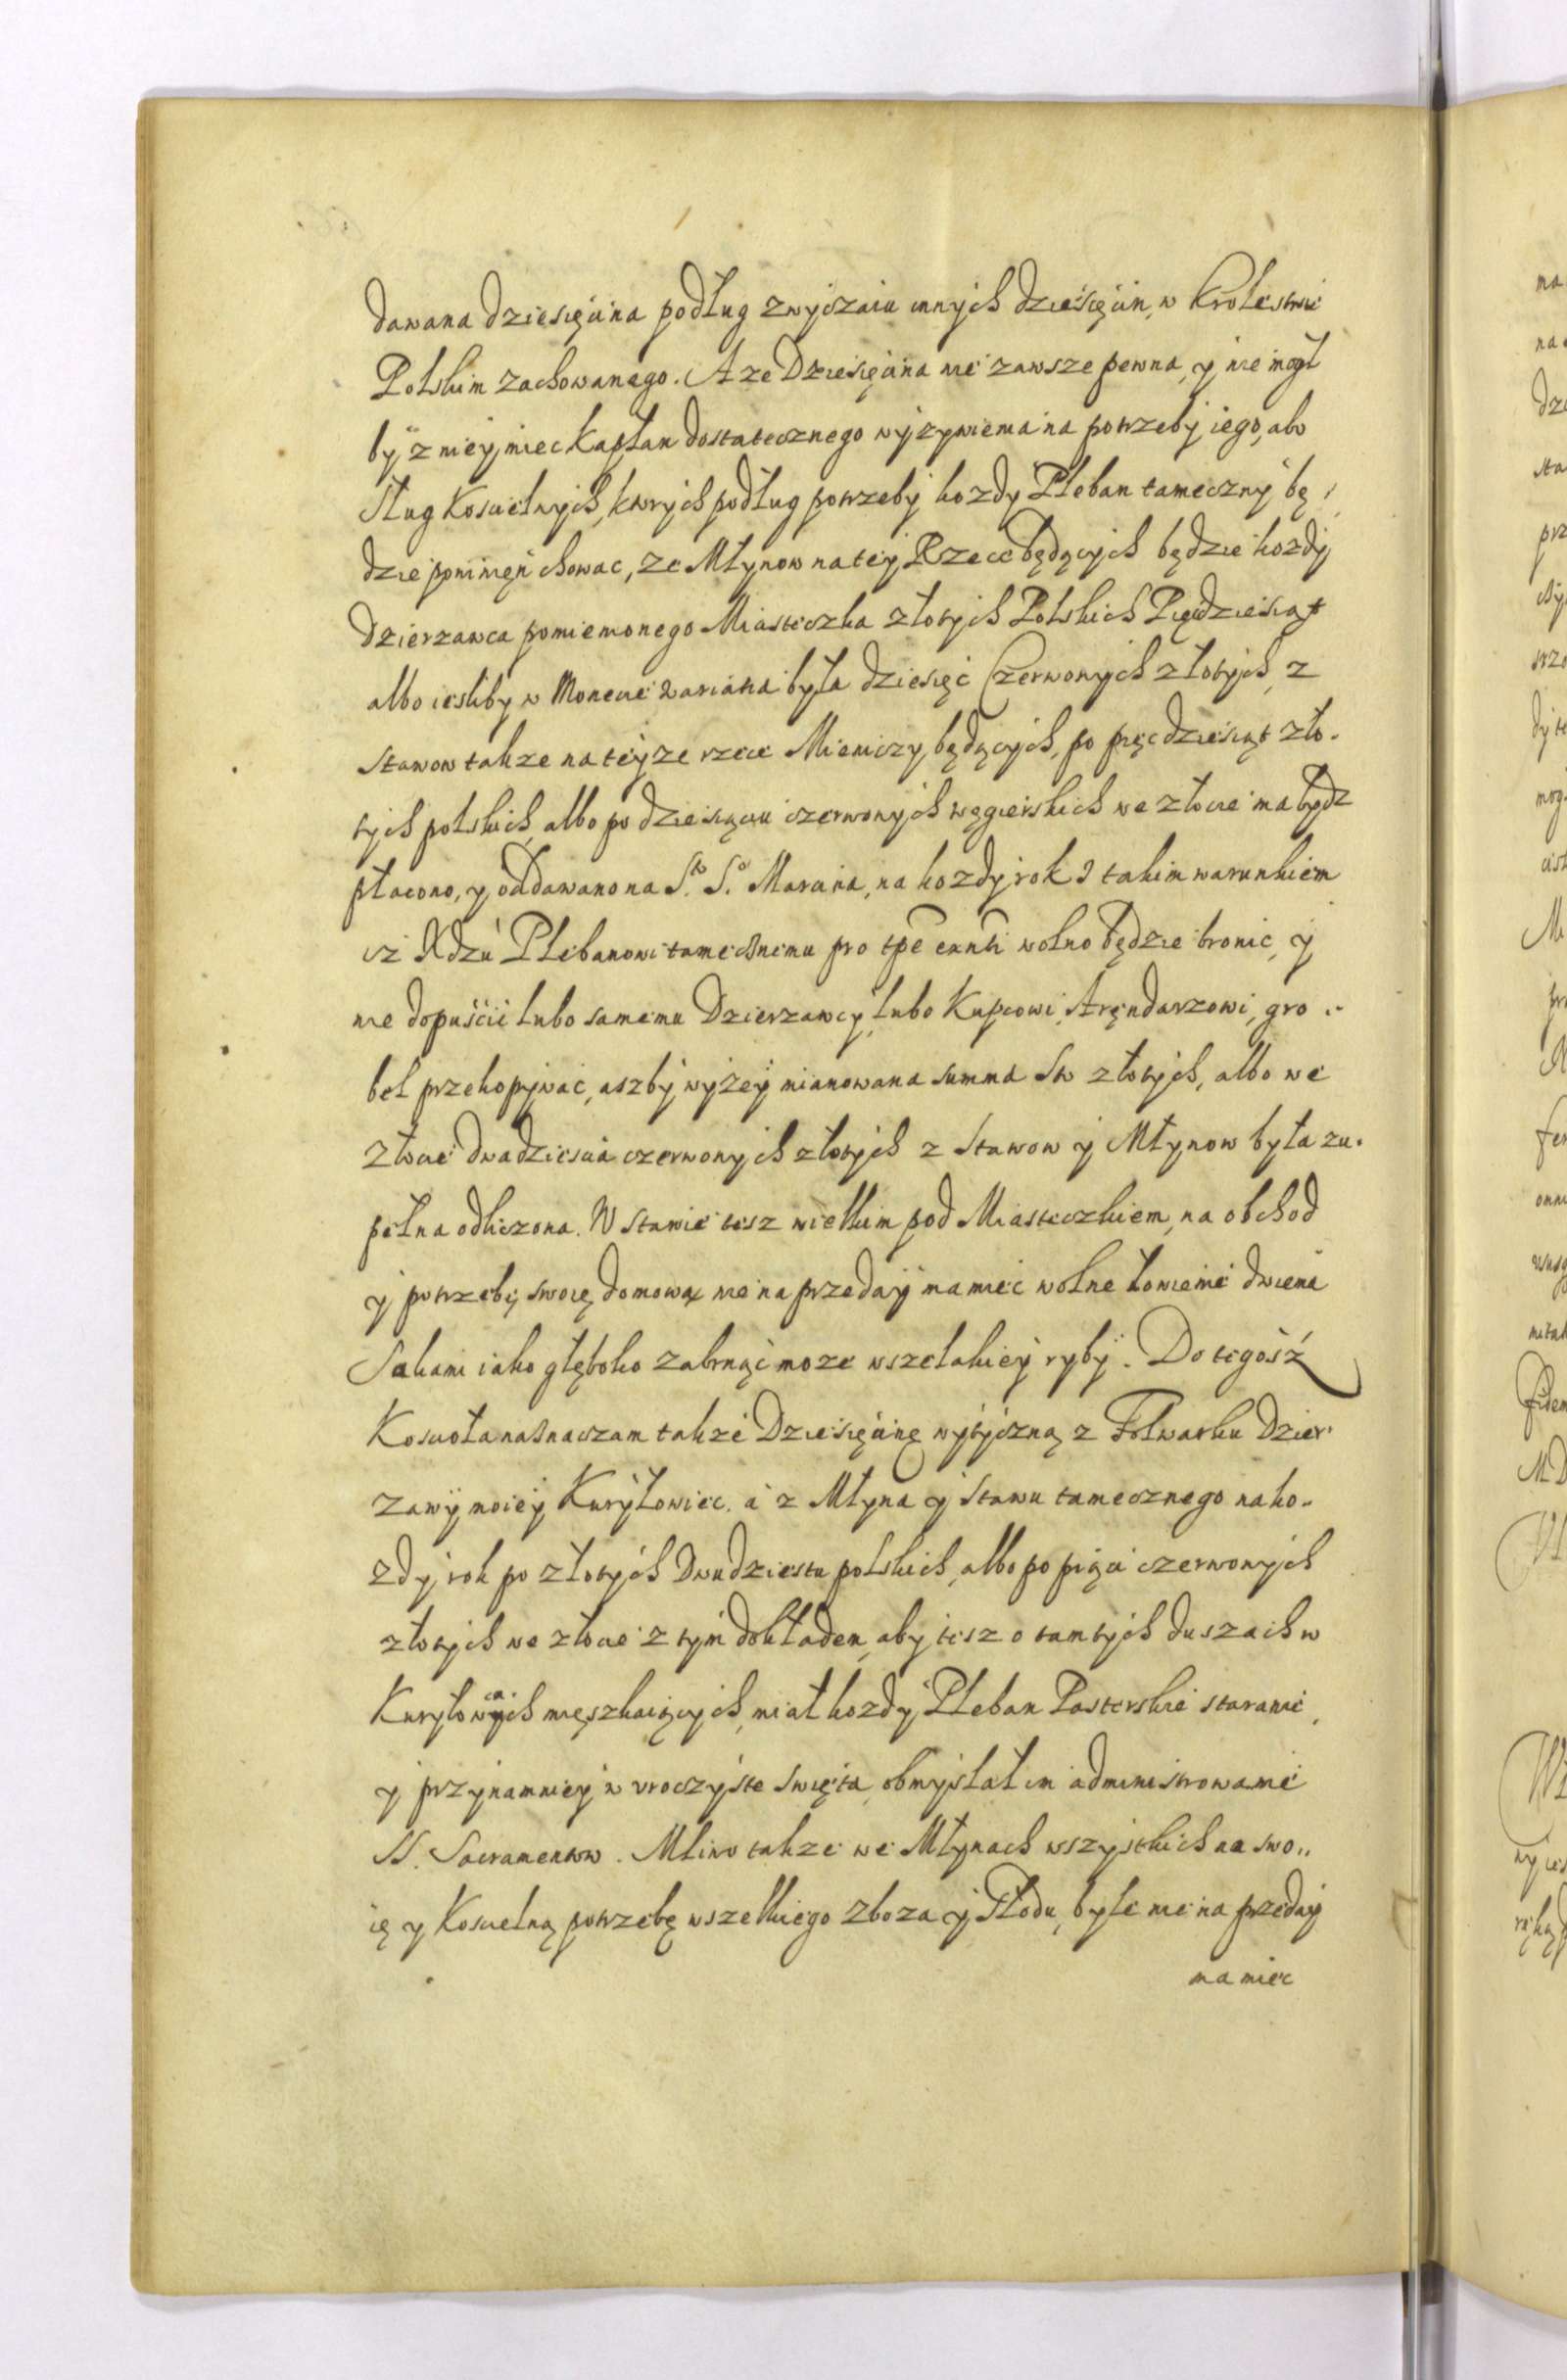 dawana dziesięcina podług zwyczaiu innych dziesięcin, w Krolestwie
Polskim zachowanego. A ze Dziesięcina nie zawsze pewna, y nie mogł
by z niey miec Kapłan dostatecznego wyzywienia na potrzeby iego, abo
Sług Koscielnych, ktorych podług potrzeby kozdy Pleban tameczny bę
dzie powinięń chowac, ze Młynow na tey Rzece będących będzie kozdy
Dzierzawca pomienionego Miasteczka złotych Polskich Pięćdziesiąt
albo iesliby w Monecie wariatia była dziesięć Czerwonych złotych, z
Stawow takze na teyze rzece Mieniczy będących, po pięcdziesiąt zło-
tych polskich, albo po dziesiąciu czerwonych węgierskich we złocie ma bydz
płacono, y oddawano na S.to S.o Marcina, na kozdy rok I takim warunkiem
isz Xdzu Plebanowi tamecznemu pro tpe exnti wolno będzie bronic, y
nie dopuścić lubo samemu Dzierzawcy, lubo Kupcowi, Aręndarzowi, gro
bel przekopywać, aszby wyżey mianowana summa Sto złotych, albo we
złocie dwadziescia czerwonych złotych z Stawow y Młynow była zu-
pełna odliczona. W Stawie tesz wielkim pod Miasteczkiem, na obchod
y potrzebę swoię domową nie na przeday ma miec wolne łowienie dwiema
Sakami iako głęboko zabrnąć moze wszelakiey ryby. Do tegosz
Koscioła naznaczam takze Dziesięcinę wytyczną z Folwarku Dzier
zawy moiey Kuryłowiec. a z Młyna y Stawu tamecznego na ko-
zdy rok po złotych Dwudziestu polskich, albo po pięci czerwonych
złotych we złocie z tym dokładem, aby tesz o tamtych duszach w
Kuryłowcach mięszkaiących, miał kozdy Pleban Pasterskie staranie,
y przynamniey w vroczyste swięta, obmyslał im administrowanie
SS. Sacramentow. Mliwo takze we Młynach wszystkich na swo-
ię y Koscielną potrzebę wszelkiego zboza y Słodu, byle nie na przeday
ma miec